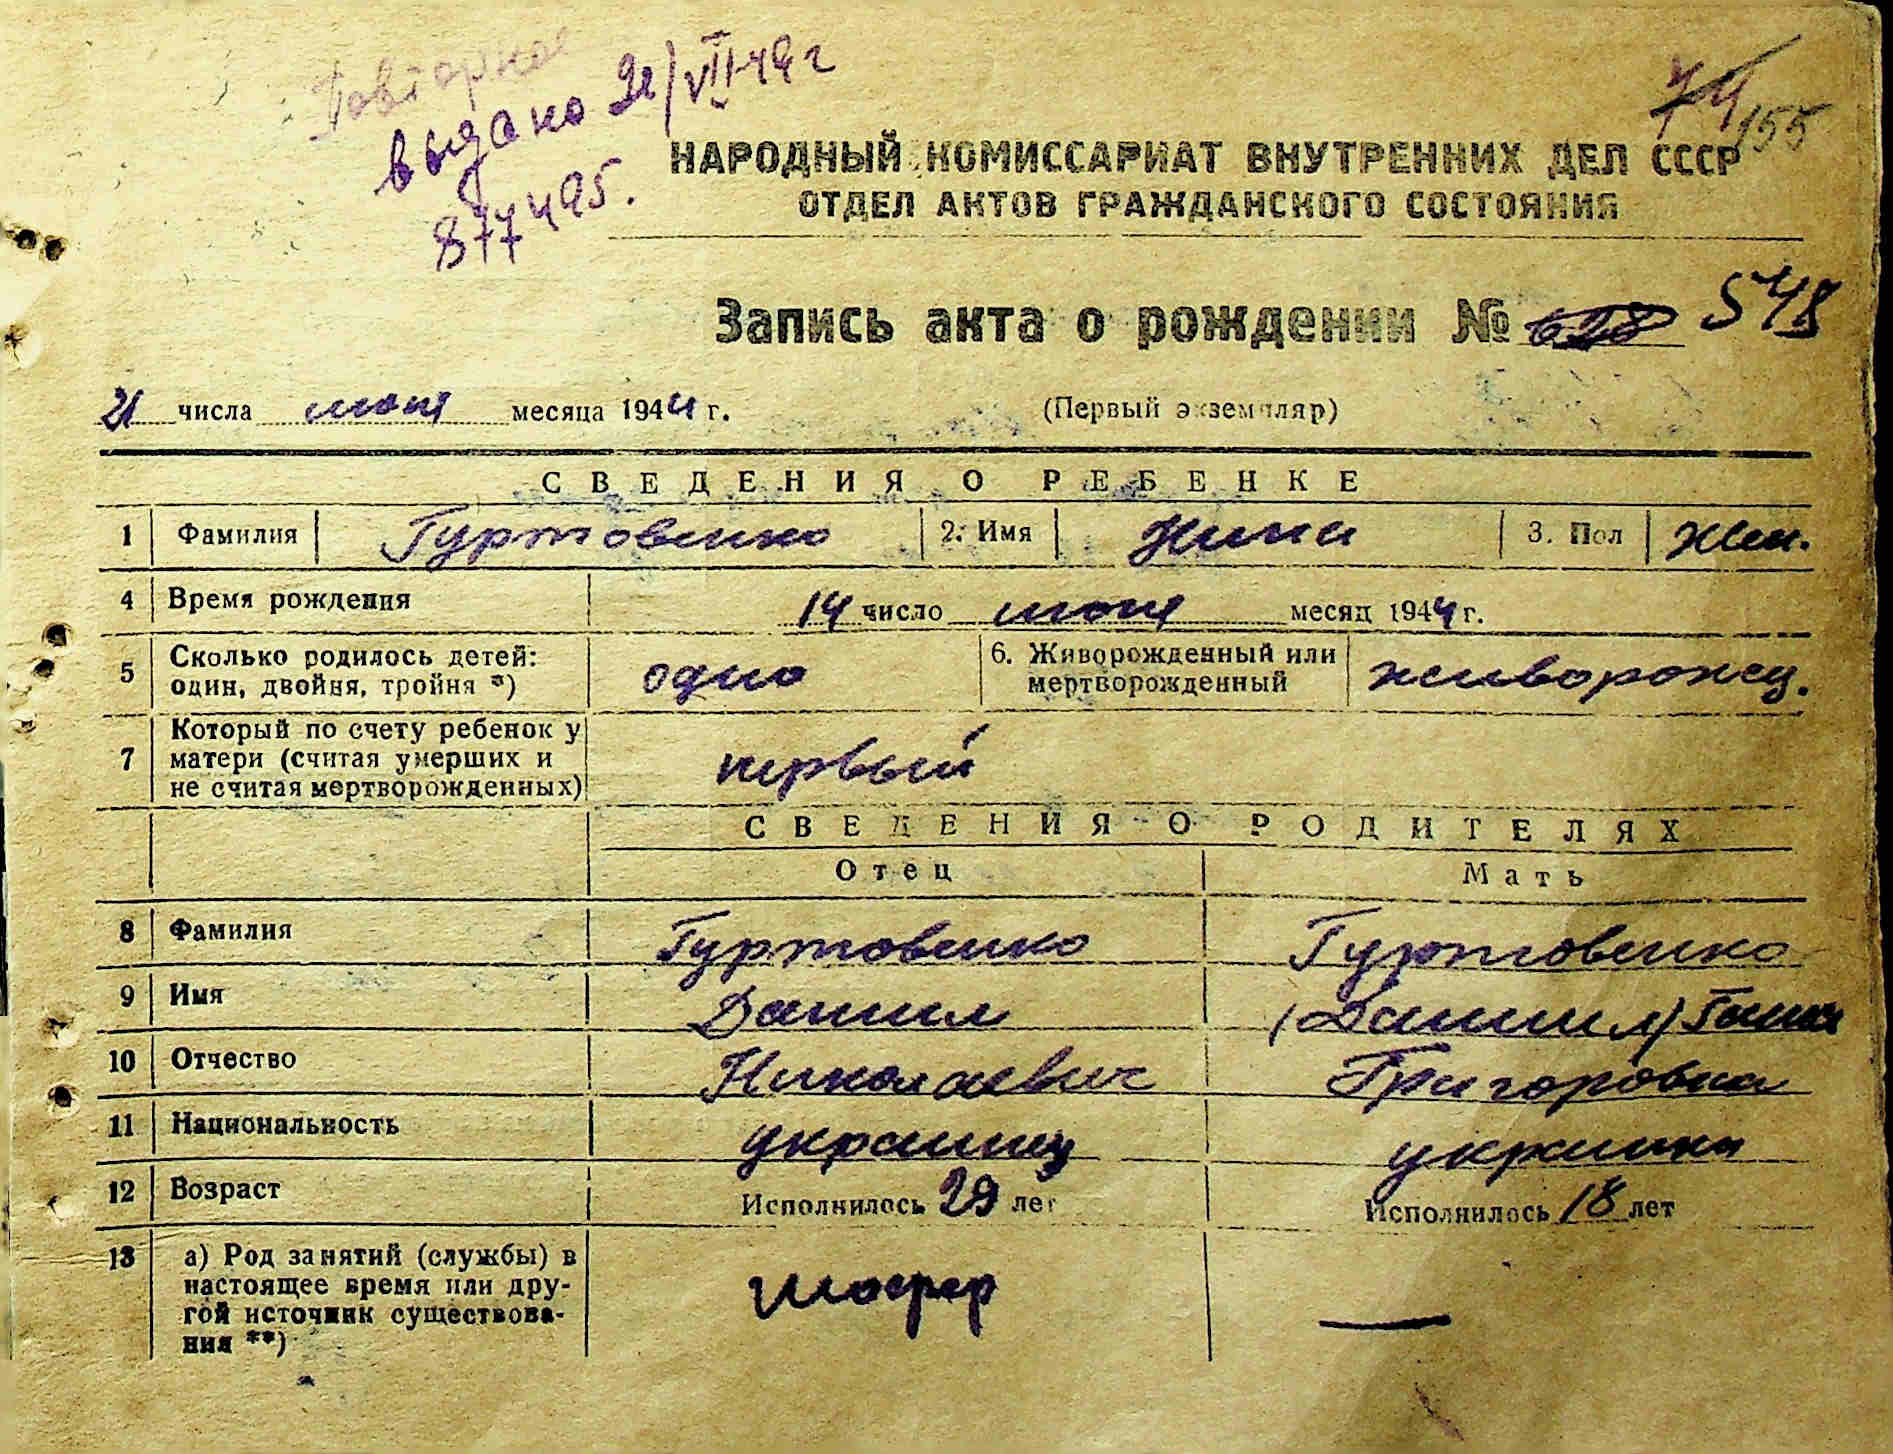 Повторное
выдано 21/VII-49 г
877495.
74/155
НАРОДНЫЙ КОМИССАРИАТ ВНУТРЕННИХ ДЕЛ СССР
ОТДЕЛ АКТОВ ГРАЖДАНСКОГО СОСТОЯНИЯ
Запись акта о рождении № 548
21 числа июня месяца 1944 г. (Первый экземпляр)
СВЕДЕНИЯ О РЕБЕНКЕ
1 Фамилия Гуртовенко 2. Имя Нина 3. Пол Жен.
4 Время рождения 14 число июня месяц 1944 г.
5 Сколько родилось детей: один, двойня, тройня *) одно 6. Живорожденный или мертворожденный живорожд.
7 Который по счету ребенок у матери (считая умерших и не считая мертворожденных) первый
СВЕДЕНИЯ О РОДИТЕЛЯХ
Отец Мать
8 Фамилия Гуртовенко Гуртовенко
9 Имя Данил (Данил)
10 Отчество Николаевич Григоровна
11 Национальность украинец украинка
12 Возраст Исполнилось 29 лет Исполнилось 18 лет
13 а) Род занятий (службы) в
настоящее время или дру-
гой источник существова-
ния **) шофер —